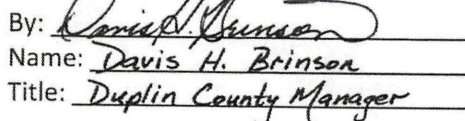 By: Davis H. Brinson
Name: Davis H. Brinson
Title: Duplin County Manager